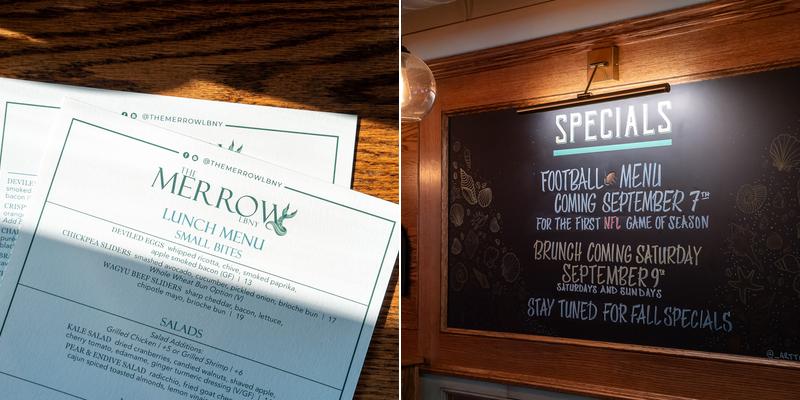 @THEMERROWLBNY
@THEMERROWLBNY
THE
MERROW
LBNY
LUNCH MENU
SMALL BITES
DEVILED EGGS whipped ricotta, chive, smoked paprika,
apple smoked bacon (GF) | 13
CHICKPEA SLIDERS smashed avocado, cucumber, pickled onion, brioche bun | 17
Whole Wheat Bun Option (V)
WAGYU BEEF SLIDERS sharp cheddar, bacon, lettuce,
chipotle mayo, brioche bun | 19
SALADS
Salad Additions:
Grilled Chicken | +5 or Grilled Shrimp | +6
KALE SALAD dried cranberries, candied walnuts, shaved apple,
cherry tomato, edamame, ginger turmeric dressing (V/GF)
PEAR & ENDIVE SALAD radicchio, fried goat
cajun spiced toasted almonds, lemon
DEVILE
smoked
CRISP
SPECIALS
FOOTBALL MENU
COMING SEPTEMBER 7TH
FOR THE FIRST NFL GAME OF SEASON
BRUNCH COMING SATURDAY
SEPTEMBER 9TH
SATURDAYS AND SUNDAYS
STAY TUNED FOR FALL SPECIALS